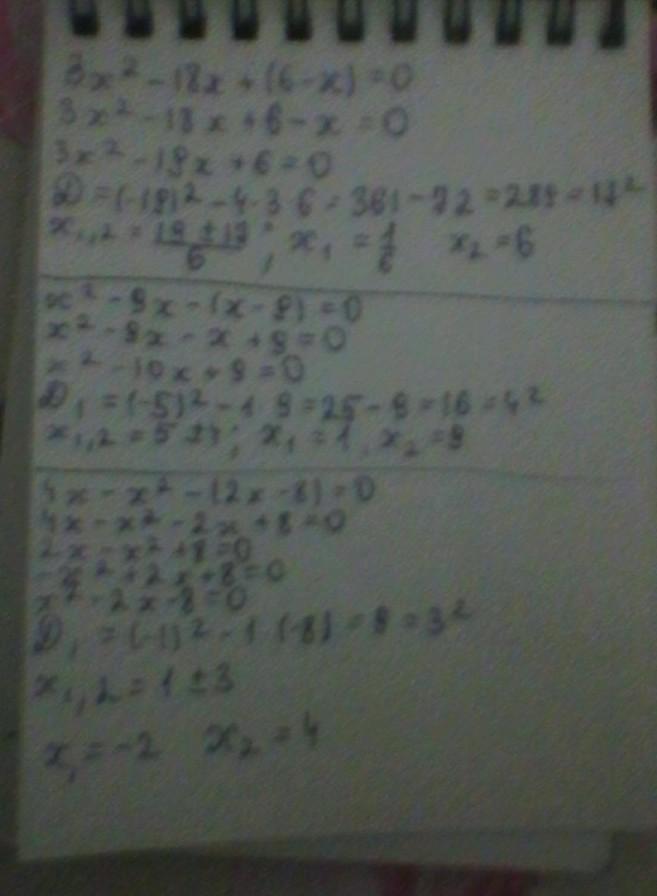 3x² - 18x + (6 - x) = 0
3x² - 18x + 6 - x = 0
3x² - 19x + 6 = 0
D = (-19)² - 4·3·6 = 361 - 72 = 289 = 17²
x₁,₂ = (19 ± 17)/6 ; x₁ = 1/6 x₂ = 6
x² - 9x - (x - 9) = 0
x² - 9x - x + 9 = 0
x² - 10x + 9 = 0
D₁ = (-5)² - 1·9 = 25 - 9 = 16 = 4²
x₁,₂ = 5 ± 4 ; x₁ = 1, x₂ = 9
4x - x² - (2x - 8) = 0
4x - x² - 2x + 8 = 0
2x - x² + 8 = 0
-x² + 2x + 8 = 0
x² - 2x - 8 = 0
D₁ = (-1)² - 1·(-8) = 9 = 3²
x₁,₂ = 1 ± 3
x₁ = -2 x₂ = 4